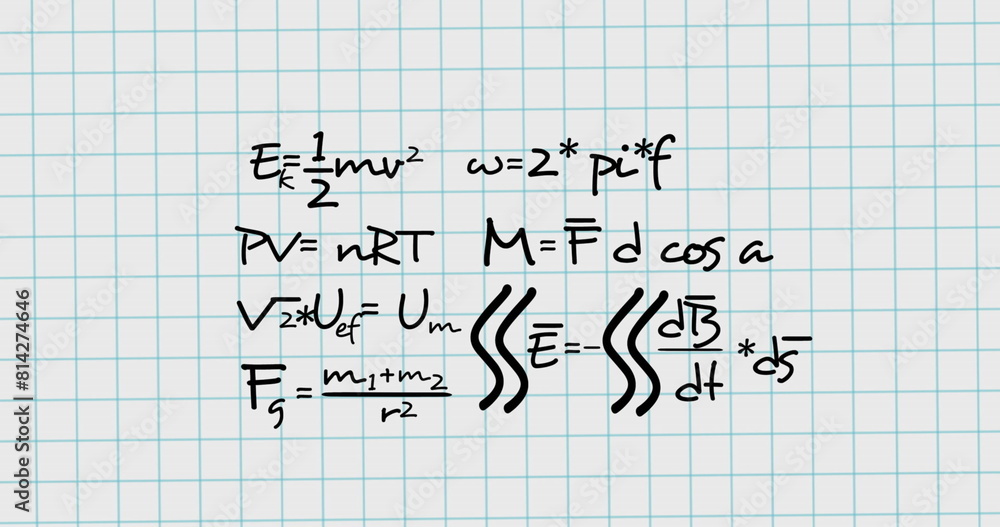 E_k = 1/2 mv² ω=2* pi*f
PV= nRT M=F̅ d cos a
√2*U_ef= U_m ∬ E̅ = -∬ dB̅/dt * ds̅
F̅_g = m₁+m₂/r²
Adobe Stock | #814274646
Adobe Stock